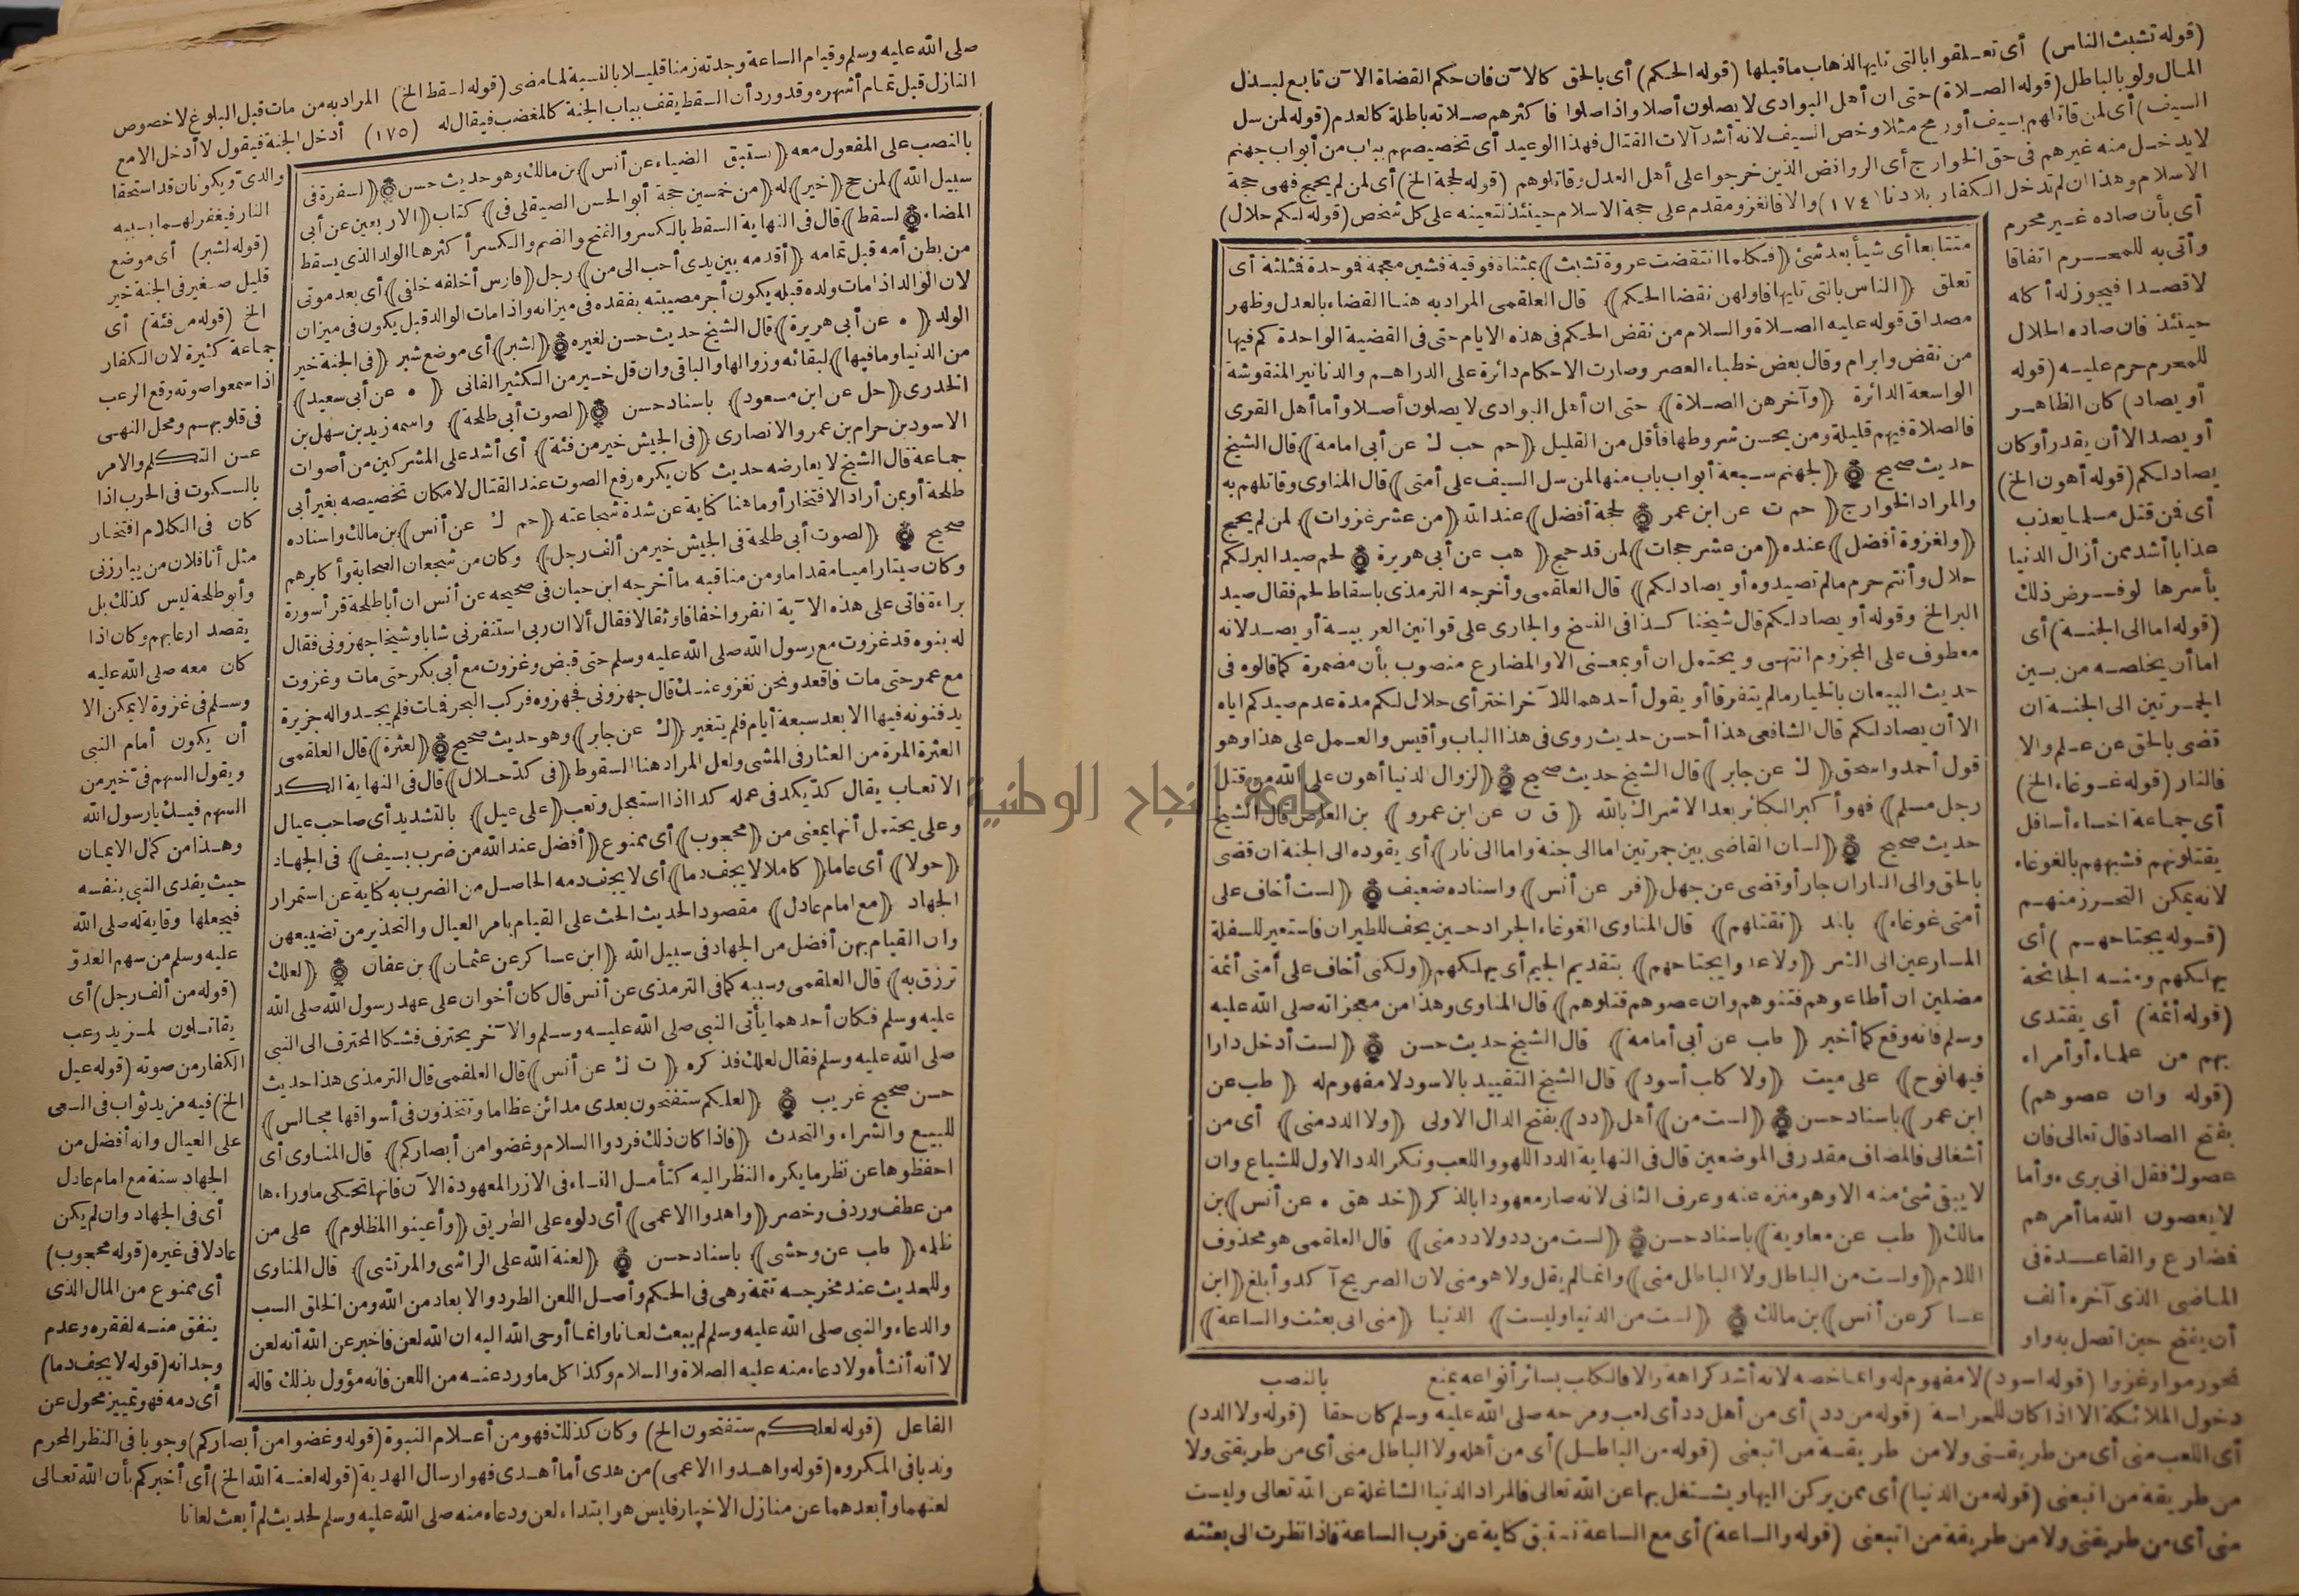 (قوله تشبث الناس) أى تعـلقوا بالتى تليها لذهاب ما قبلها (قوله الحكم) أى بالحق كالآن فان حكم القضاة الآن تابع لبـذل
المال ولو بالباطل (قوله الصـلاة) حتى ان أهل البوادى لا يصلون أصلا واذا صلوا فأكثرهم صـلاته باطلة كالعدم (قوله لمن سل
السيف) أى لمن قاتلهم بسيف أو رمح مثلا وخص السيف لانه أشد آلات القتال فهذا الوعيد أى تخصيصهم بباب من أبواب جهنم
لا يدخـل منه غيرهم فى حق الخوارج أى الروافض الذين خرجوا على أهل العدل وقاتلوهم (قوله لحجة الخ) أى لمن لم يحج فهى حجة
الاسلام وهذا ان لم تدخل الكفار بلادنا (١٧٤) والا فالغزو مقدم على حجة الاسلام حينئذ لتعينه على كل شخص (قوله لكم حلال)
أى بأن صاده غـير محرم
وأتى به للمحـرم اتفاقا
لا قصـدا فيجوز له أكله
حينئذ فان صاده الحلال
للمحرم حرم عليـه (قوله
أو يصاد) كان الظاهـر
أو يصد الا أن يقدر أو كان
يصاد لكم (قوله أهون الخ)
أى فمن قتل مسلما يعذب
عذابا أشد ممن أزال الدنيا
بأسرها لو فـرض ذلك
(قوله اما الى الجنـة) أى
اما أن يخلصـه من بـين
الجمـرتين الى الجنـة ان
قضى بالحق عن عـلم والا
فالنار (قوله غـوغاء الخ)
أى جمـاعة اخساء أسافل
يقتلونهم فشبههم بالغوغاء
لانه يمكن التحـرز منهـم
(قـوله يجتاحهـم) أى
يهلكهم ومنـه الجائحة
(قوله أئمة) أى يقتدى
بهم من علماء أو أمراء
(قوله وان عصوهم)
بفتح الصاد قال تعالى فان
عصوك فقل انى برىء وأما
لا يعصون الله ما أمرهم
فضارع والقاعـدة فى
الماضى الذى آخره ألف
أن يفتح حين اتصل به واو
متتابعا أى شيأ بعد شئ ﴿فكلما انتقضت عروة تشبث﴾ بمثناة فوقية فشين معجمة فموحدة فمثلثة أى
تعلق ﴿الناس بالتى تليها فاولهن نقضا الحكم﴾ قال العلقمى المراد به هنـا القضاء بالعدل وظهر
مصداق قوله عليه الصـلاة والسلام من نقض الحكم فى هذه الايام حتى فى القضية الواحدة كم فيها
من نقض وابرام وقال بعض خطباء العصر وصارت الاحكام دائرة على الدراهـم والدنانير المنقوشة
الواسعة الدائرة ﴿وآخرهن الصـلاة﴾ حتى ان أهل البوادى لا يصلون أصـلا وأما أهل القرى
فالصلاة فيهم قليلة ومن يحسن شروطها فأقل من القليل ﴿حم حب ك عن أبى امامة﴾ قال الشيخ
حديث صحيح ﴿لجهنم سـبعة أبواب باب منها لمن سل السيف على أمتى﴾ قال المناوى وقاتلهم به
والمراد الخوارج ﴿حم ت عن ابن عمر لحجة أفضل﴾ عند الله ﴿من عشر غزوات﴾ لمن لم يحج
﴿ولغزوة أفضل﴾ عنده ﴿من عشر حجات﴾ لمن قد حج ﴿هب عن أبى هريرة لحم صيد البر لكم
حلال وأنتم حرم مالم تصيدوه أو يصاد لكم﴾ قال العلقمى وأخرجه الترمذى باسقاط لحم فقال صيد
البر الخ وقوله أو يصاد لكم قال شيخنا كـذا فى النسخ والجارى على قوانين العربيـة أو يصـد لانه
معطوف على المجزوم انتهى ويحتمل ان أو بمعـنى الا والمضارع منصوب بأن مضمرة كما قالوه فى
حديث البيعان بالخيار مالم يتفرقا أو يقول أحدهما للآخر اختر أى حلال لكم مدة عدم صيدكم اياه
الا أن يصاد لكم قال الشافعى هذا أحسن حديث روى فى هذا الباب وأقيس والعـمل على هذا وهو
قول أحمد واسحق ﴿ك عن جابر﴾ قال الشيخ حديث صحيح ﴿لزوال الدنيا أهون على الله من قتل
رجل مسلم﴾ فهو أكبر الكبائر بعد الاشراك بالله ﴿ق ن عن ابن عمرو﴾ بن العاص قال الشيخ
حديث صحيح ﴿لسان القاضى بين جمرتين اما الى جنة واما الى نار﴾ أى يقوده الى الجنة ان قضى
بالحق والى النار ان جار أو قضى عن جهل ﴿فر عن أنس﴾ واسناده ضعيف ﴿لست أخاف على
أمتى غوغاء﴾ بالمد ﴿تقتلهم﴾ قال المناوى الغوغاء الجراد حـين يخف للطيران فاستعير للسفلة
المسارعين الى الشر ﴿ولا عدوا يجتاحهم﴾ بتقديم الجيم أى يهلكهم ﴿ولكنى أخاف على أمتى أئمة
مضلين ان أطاعوهم فتنوهم وان عصوهم قتلوهم﴾ قال المناوى وهذا من معجزاته صلى الله عليه
وسلم فانه وقع كما أخبر ﴿طب عن أبى أمامة﴾ قال الشيخ حديث حسن ﴿لست أدخل دارا
فيها نوح﴾ على ميت ﴿ولا كلب أسود﴾ قال الشيخ التقييد بالاسود لا مفهوم له ﴿طب عن
ابن عمر﴾ باسناد حسن ﴿لست من﴾ أهل ﴿دد﴾ بفتح الدال الاولى ﴿ولا الدد منى﴾ أى من
أشغالى فالمضاف مقدر فى الموضعين قال فى النهاية الدد اللهو واللعب ونكر الدد الاول للشياع وان
لا يبقى شئ منه الا وهو منزه عنه وعرف الثانى لانه صار معهودا بالذكر ﴿خد هق ه عن أنس﴾ بن
مالك ﴿طب عن معاوية﴾ باسناد حسن ﴿لست من دد ولا دد منى﴾ قال العلقمى هو محذوف
اللام ﴿ولست من الباطل ولا الباطل منى﴾ وانما لم يقل ولا هو منى لان الصريح آكد وأبلغ ﴿ابن
عساكر عن أنس﴾ بن مالك ﴿لست من الدنيا وليست﴾ الدنيا ﴿منى انى بعثت والساعة﴾
نحو رموا وغزوا (قوله اسود) لا مفهوم له وانما خصه لانه أشد كراهة والا فالكلب بسائر أنواعه يمنع بالنصب
دخول الملائكة الا اذا كان للحراسة (قوله من دد) أى من أهل دد أى لعب ومزحه صلى الله عليه وسلم كان حقا (قوله ولا الدد)
أى اللعب منى أى من طريقـتى ولا من طريقـة من اتبعنى (قوله من الباطـل) أى من أهله ولا الباطل منى أى من طريقتى ولا
من طريقة من اتبعنى (قوله من الدنيا) أى ممن يركن اليها ويشـتغل بها عن الله تعالى فالمراد الدنيا الشاغلة عن الله تعالى وليست
منى أى من طريقتى ولا من طريقة من اتبعنى (قوله والساعة) أى مع الساعة نستبق كناية عن قرب الساعة فاذا نظرت الى بعثته
صلى الله عليه وسلم وقيام الساعة وجدته زمنا قليـلا بالنسبة لما مضى (قوله لسقط الخ) المراد به من مات قبل البلوغ لا خصوص
النازل قبل تمام أشهره وقد ورد أن السقط يقف بباب الجنة كالمغضب فيقال له (١٧٥) أدخل الجنة فيقول لا أدخل الا مع
والدىّ ويكونان قد استحقا
النار فيغفر لهـما بسببه
(قوله لشبر) أى موضع
قليل صـغير فى الجنة خير
الخ (قوله من فئة) أى
جماعة كثيرة لان الكفار
اذا سمعوا صوته وقع الرعب
فى قلوبهـم ومحل النهـى
عـن التكلم والامر
بالسكوت فى الحرب اذا
كان فى الكلام افتخار
مثل أنا فلان من يبارزنى
وأبو طلحة ليس كذلك بل
يقصد ارعابهم وكان اذا
كان معه صلى الله عليه
وسـلم فى غزوة لا يمكن الا
أن يكون أمام النبى
ويقول السهم فىّ خير من
السهم فيـك يا رسول الله
وهـذا من كمال الايمان
حيث يفدى النبى بنفسه
فيجعلها وقاية له صلى الله
عليه وسلم من سهم العدوّ
(قوله من ألف رجل) أى
يقاتـلون لمـزيد رعب
الكفار من صوته (قوله عيل
الخ) فيه مزيد ثواب فى السعى
على العيال وانه أفضل من
الجهاد سنة مع امام عادل
أى فى الجهاد وان لم يكن
عادلا فى غيره (قوله محجوب)
أى ممنوع من المال الذى
ينفق منـه لفقره وعدم
وجدانه (قوله لا يجف دما)
أى دمه فهو تمييز محول عن
بالنصب على المفعول معه ﴿نستبق الضياء عن أنس﴾ بن مالك وهو حديث حسن ﴿لسفرة فى
سبيل الله﴾ لمن حج ﴿خير﴾ له ﴿من خمسين حجة أبو الحسن الصيقلى فى﴾ كتاب ﴿الاربعين عن أبى
المضاء لسقط﴾ قال فى النهاية السقط بالكسر والفتح والضم والكسر أكثرها الولد الذى يسقط
من بطن أمه قبل تمامه ﴿أقدمه بين يدى أحب الى من﴾ رجل ﴿فارس أخلفه خلفى﴾ أى بعد موتى
لان الوالد اذا مات ولده قبله يكون أجر مصيبته بفقده فى ميزانه واذا مات الوالد قبل يكون فى ميزان
الولد ﴿ه عن أبى هريرة﴾ قال الشيخ حديث حسن لغيره ﴿لشبر﴾ أى موضع شبر ﴿فى الجنة خير
من الدنيا وما فيها﴾ لبقائه وزوالها والباقى وان قل خـير من الكثير الفانى ﴿ه عن أبى سعيد﴾
الخدرى ﴿حل عن ابن مسعود﴾ باسناد حسن ﴿لصوت أبى طلحة﴾ واسمه زيد بن سهل بن
الاسود بن حرام بن عمرو الانصارى ﴿فى الجيش خير من فئة﴾ أى أشد على المشركين من أصوات
جماعة قال الشيخ لا يعارضه حديث كان يكره رفع الصوت عند القتال لامكان تخصيصه بغير أبى
طلحة أو بمن أراد الافتخار أو ما هنا كناية عن شدة شجاعته ﴿حم ك عن أنس﴾ بن مالك واسناده
صحيح ﴿لصوت أبى طلحة فى الجيش خير من ألف رجل﴾ وكان من شجعان الصحابة وأكابرهم
وكان صيتا راميا مقداما ومن مناقبه ما أخرجه ابن حبان فى صحيحه عن أنس ان أبا طلحة قرأ سورة
براءة فاتى على هذه الآية انفروا خفافا وثقالا فقال ألا ان ربى استنفرنى شابا وشيخا جهزونى فقال
له بنوه قد غزوت مع رسول الله صلى الله عليه وسلم حتى قبض وغزوت مع أبى بكر حتى مات وغزوت
مع عمر حتى مات فاقعد ونحن نغزو عنـك قال جهزونى فجهزوه فركب البحر فمات فلم يجـدوا له جزيرة
يدفنونه فيها الا بعد سبعة أيام فلم يتغير ﴿ك عن جابر﴾ وهو حديث صحيح ﴿لعثرة﴾ قال العلقمى
العثرة المرة من العثار فى المشى ولعل المراد هنا السقوط ﴿فى كدّ حـلال﴾ قال فى النهاية الكد
الاتعاب يقال كدّ يكد فى عمله كدا اذا استعجل وتعب ﴿على عيل﴾ بالتشديد أى صاحب عيال
وعلى يحتمل أنها بمعنى من ﴿محجوب﴾ أى ممنوع ﴿أفضل عند الله من ضرب بسيف﴾ فى الجهاد
﴿حولا﴾ أى عاما ﴿كاملا لا يجف دما﴾ أى لا يجف دمه الحاصـل من الضرب به كناية عن استمرار
الجهاد ﴿مع امام عادل﴾ مقصود الحديث الحث على القيام بامر العيال والتحذير من تضييعهن
وان القيام بهن أفضل من الجهاد فى سبيل الله ﴿ابن عساكر عن عثمان﴾ بن عفان ﴿لعلك
ترزق به﴾ قال العلقمى وسببه كما فى الترمذى عن أنس قال كان أخوان على عهد رسول الله صلى الله
عليه وسلم فكان أحدهما يأتى النبى صلى الله عليـه وسـلم والآخر يحترف فشكا المحترف الى النبى
صلى الله عليه وسلم فقال لعلك فذكره ﴿ت ك عن أنس﴾ قال العلقمى قال الترمذى هذا حديث
حسن صحيح غريب ﴿لعلكم ستفتحون بعدى مدائن عظاما وتتخذون فى أسواقها مجالس﴾
للبيع والشراء والتحدث ﴿فاذا كان ذلك فردوا السلام وغضوا من أبصاركم﴾ قال المناوى أى
احفظوها عن نظر ما يكره النظر اليه كتأمـل النساء فى الازر المعهودة الآن فانها تحكى ما وراءها
من عطف وردف وخصر ﴿واهدوا الاعمى﴾ أى دلوه على الطريق ﴿وأعينوا المظلوم﴾ على من
ظلمه ﴿طب عن وحشى﴾ باسناد حسن ﴿لعنة الله على الراشى والمرتشى﴾ قال المناوى
وللحديث عند مخرجـه تتمة وهى فى الحكم وأصـل اللعن الطرد والابعاد من الله ومن الخلق السب
والدعاء والنبى صلى الله عليه وسلم لم يبعث لعانا وانما أوحى الله اليه ان الله لعن فاخبر عن الله أنه لعن
لا أنه أنشأه ولا دعاء منه عليه الصلاة والسلام وكذا كل ما ورد عنـه من اللعن فانه مؤول بذلك قاله
الفاعل (قوله لعلكم ستفتحون الخ) وكان كذلك فهو من أعـلام النبوة (قوله وغضوا من أبصاركم) وجوبا فى النظر المحرم
وندبا فى المكروه (قوله واهـدوا الاعمى) من هدى أما أهـدى فهو ارسال الهدية (قوله لعنـة الله الخ) أى أخبركم بأن الله تعالى
لعنهما وأبعدهما عن منازل الاخيار فليس هو ابتداء لعن ودعاء منه صلى الله عليه وسلم لحديث لم أبعث لعانا
جامعة النجاح الوطنية